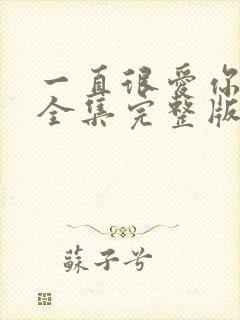 一直很爱你
全集完整版
蘇子兮